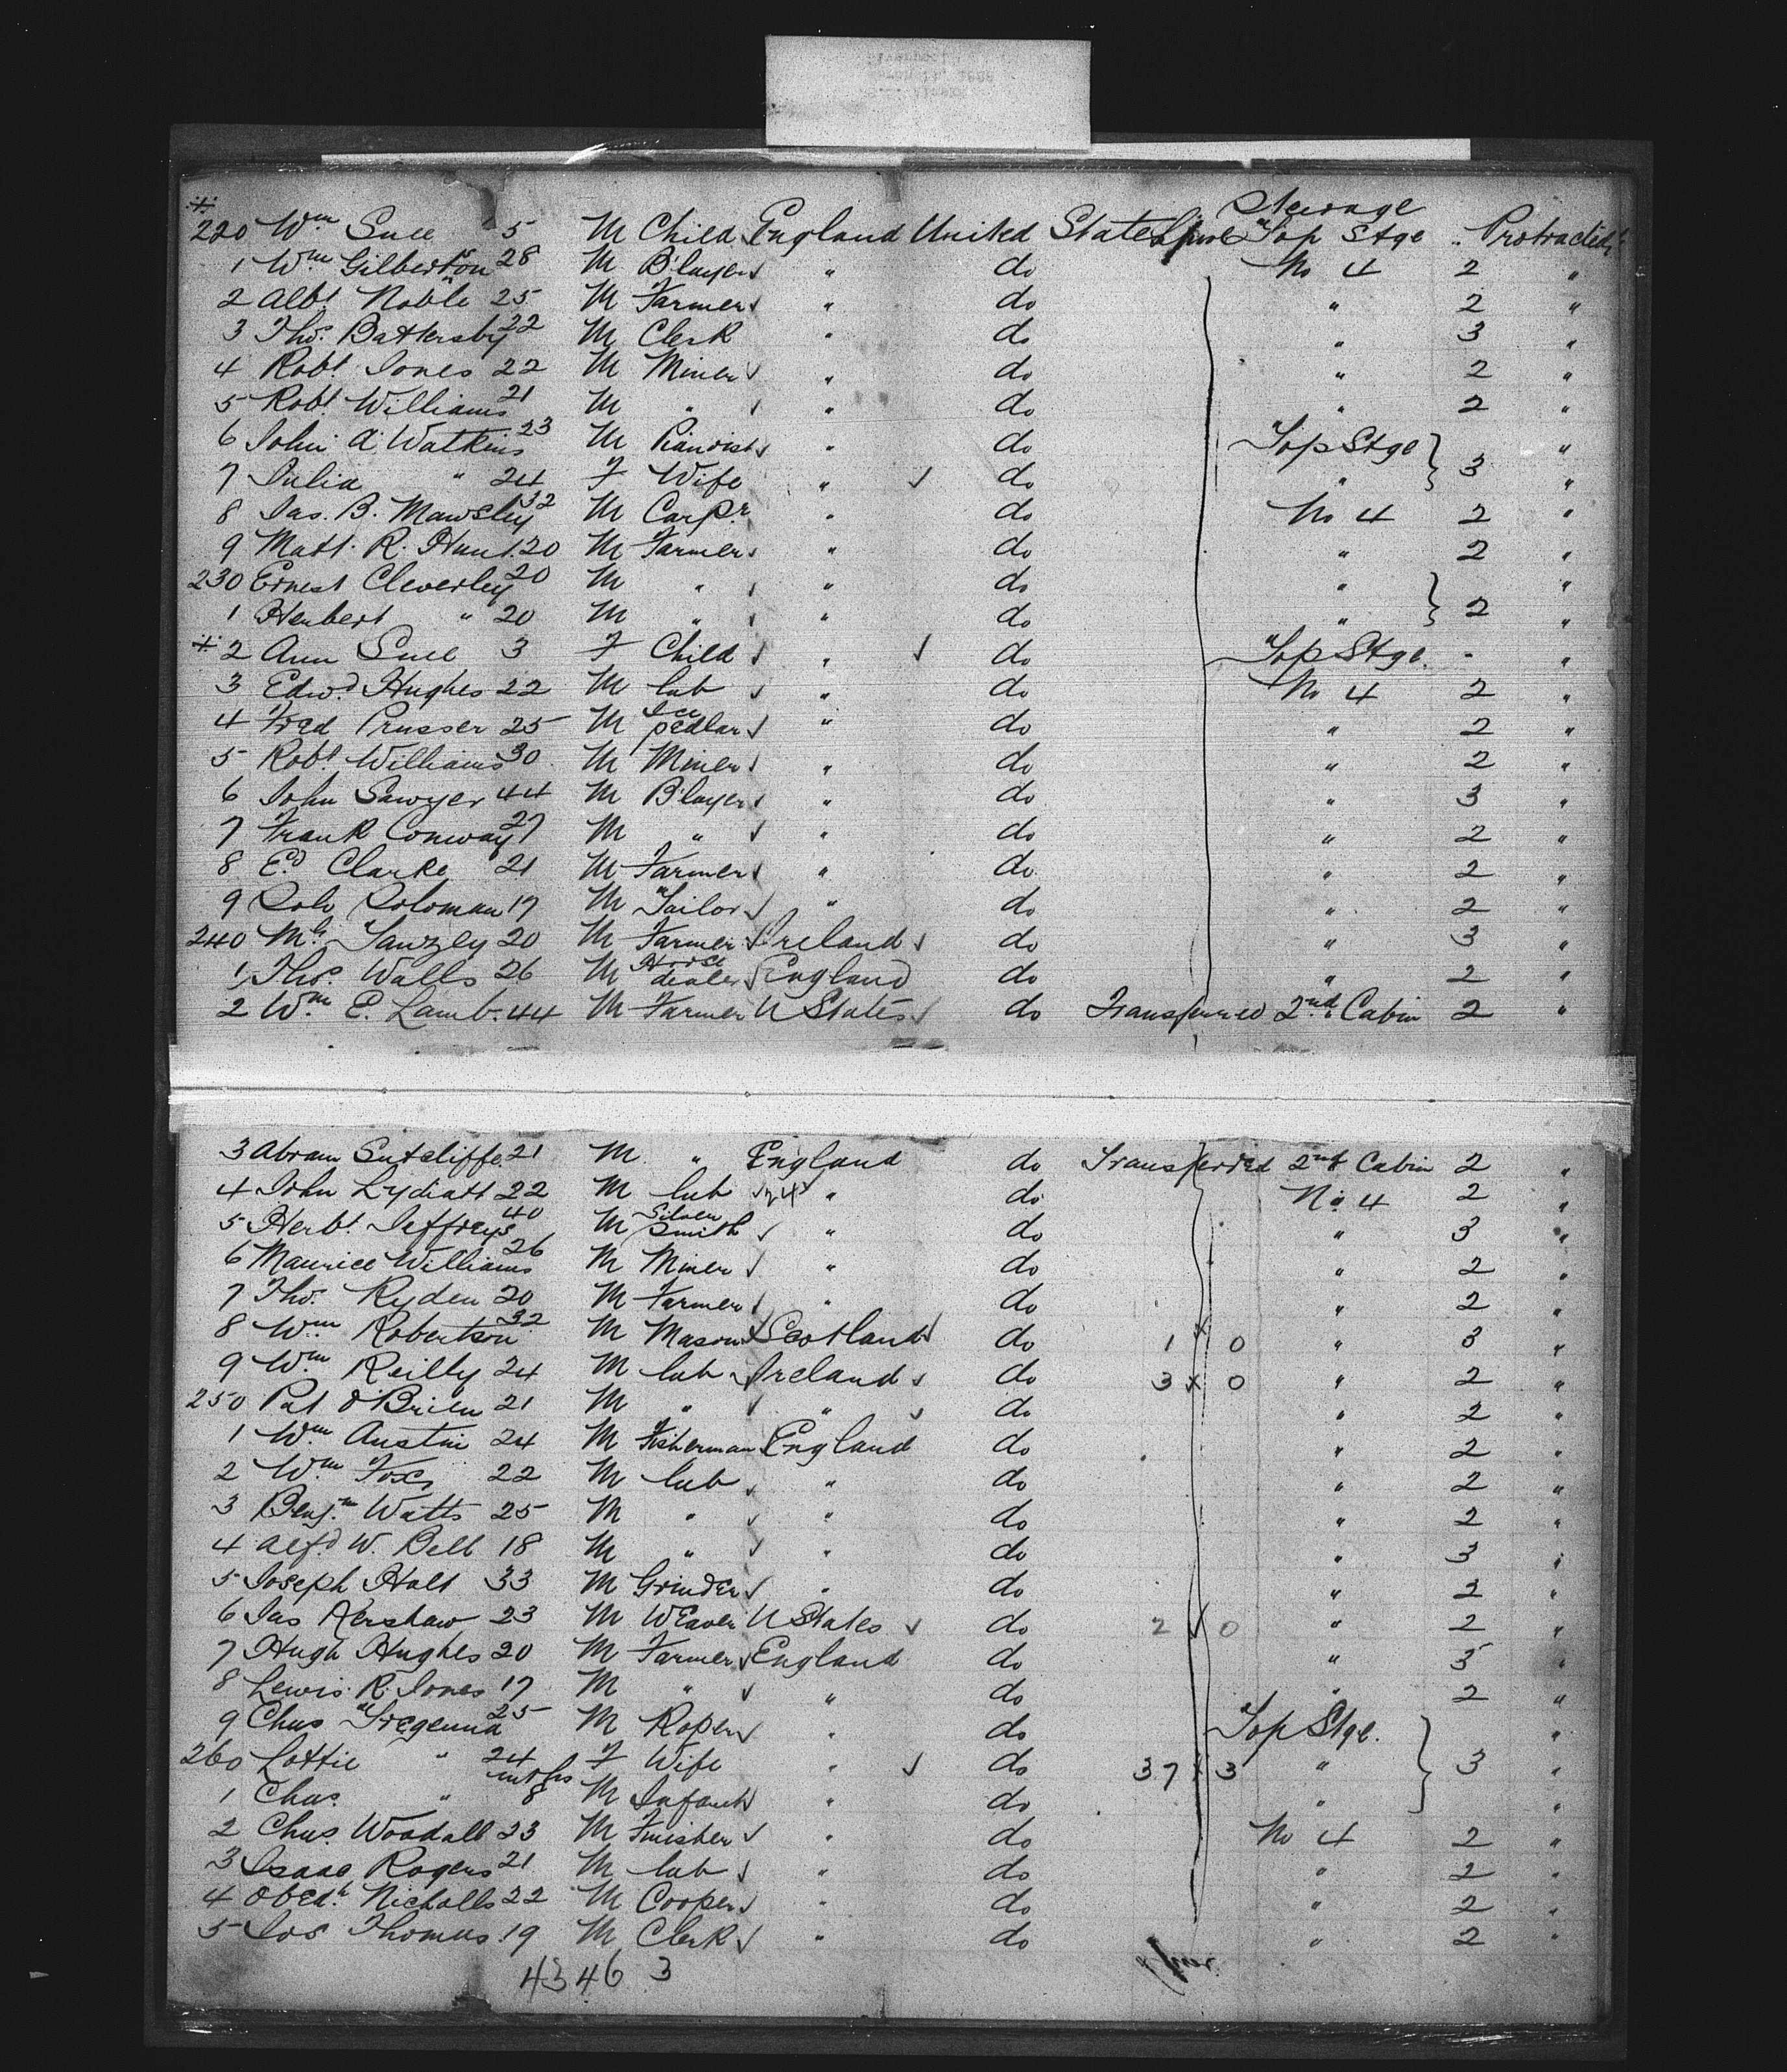 Steerage
220 Wm Snee 5 M Child England United States Top Stge " Protracted
1 Wm Gilbertson 28 M B'layer " do No 4 2 "
2 Albt Noble 25 M Farmer " do " 2 "
3 Thos. Battersby 22 M Clerk " do " 3 "
4 Robt Jones 22 M Miner " do " 2 "
5 Robt Williams 21 M " " do " 2 "
6 John A Watkins 23 M Pianoist " do Top Stge "
7 Julia " 24 F Wife " do " 3 "
8 Jas. B. Mawsley 32 M Carpr " do No 4 2 "
9 Matt. R. Hunt 20 M Farmer " do " 2 "
230 Ernest Cleverley 20 M " " do " "
1 Herbert " 20 M " " do " 2 "
2 Ann Snee 3 F Child " do Top Stge. - "
3 Edwd Hughes 22 M lab " do No 4 2 "
4 Fred Prusser 25 M Ice pedlar " do " 2 "
5 Robt Williams 30 M Miner " do " 2 "
6 John Sawyer 44 M B'layer " do " 3 "
7 Frank Conway 27 M " " do " 2 "
8 Ed Clarke 21 M Farmer " do " 2 "
9 Sol Soloman 17 M Tailor " do " 2 "
240 Ml 20 M Farmer Ireland do " 3 "
1 Thos. Walls 26 M Horse dealer England do " 2 "
2 Wm E. Lamb. 44 M Farmer U States do Transferred 2nd Cabin 2 "
3 Abram Sutcliffe 21 M " England do Transferred 2nd Cabin 2 "
4 John Lydiatt 22 M lab 24 " do No 4 2 "
5 Herbt. Jeffreys 40 M Silver Smith " do " 3 "
6 Maurice Williams 26 M Miner " do " 2 "
7 Thos. Ryden 20 M Farmer " do " 2 "
8 Wm Robertson 32 M Mason Scotland do 1 x 0 " 3 "
9 Wm Reilly 24 M lab Ireland do 3 x 0 " 2 "
250 Pat O'Brien 21 M " " do " 2 "
1 Wm Austin 24 M Fisherman England do " 2 "
2 Wm Fox 22 M lab " do " 2 "
3 Benjn Watts 25 M " " do " 2 "
4 Alfd W. Bell 18 M " " do " 3 "
5 Joseph Holt 33 M Grinder " do " 2 "
6 Jas Kershaw 23 M Weaver U States do 2 x 0 " 2 "
7 Hugh Hughes 20 M Farmer England do " 3 "
8 Lewis R. Jones 17 M " " do " 2 "
9 Chas Tregenna 25 M Roper " do Top Stge. "
260 Lottie " 24 F Wife " do 37 x 3 " 3 "
1 Chas. " mths 8 M Infant " do " "
2 Chas. Woodall 23 M Finisher " do No 4 2 "
3 Isaac Rogers 21 M lab " do " 2 "
4 Obedh Nicholls 22 M Cooper " do " 2 "
5 Jos Thomas 19 M Clerk " do " 2 "
4346 3